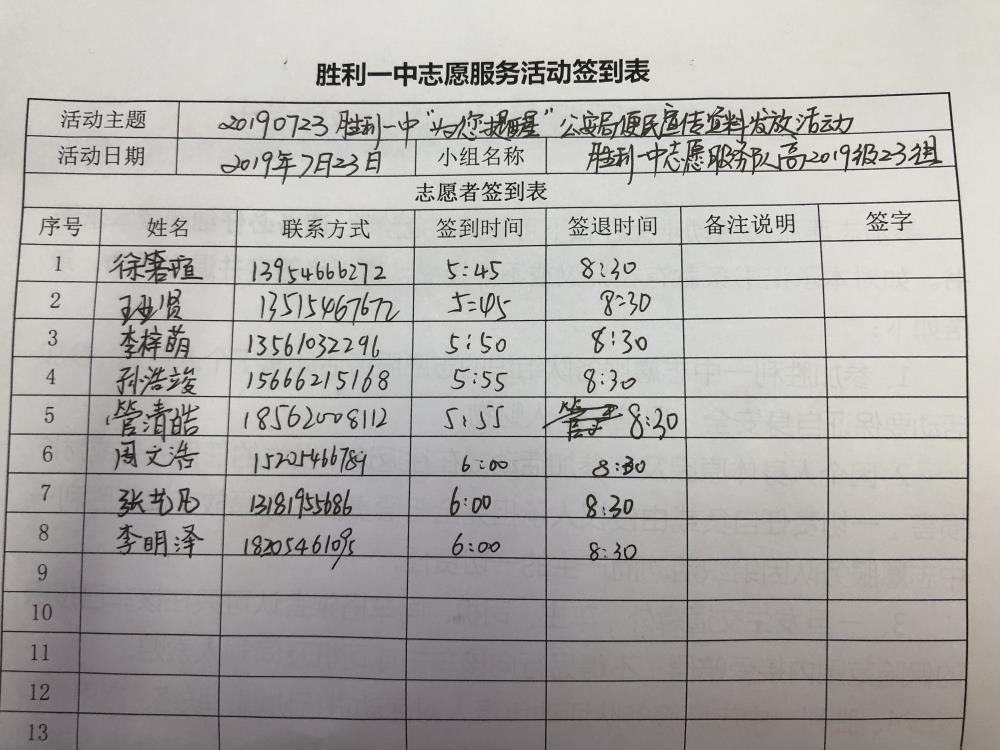 胜利一中志愿服务活动签到表
活动主题 20190723胜利一中“为您提醒”公安局便民宣传资料发放活动
活动日期 2019年7月23日 小组名称 胜利一中志愿服务队高2019级23组
志愿者签到表
序号 姓名 联系方式 签到时间 签退时间 备注说明 签字
1 徐 瑄 13954666272 5:45 8:30
2 贤 13515467672 5:45 8:30
3 李梓萌 13561032296 5:50 8:30
4 孙浩竣 15666215168 5:55 8:30
5 管清皓 18562008112 5:55 8:30
6 周文浩 15205466789 6:00 8:30
7 张艺凡 13181955686 6:00 8:30
8 李明泽 18205461095 6:00 8:30
9
10
11
12
13